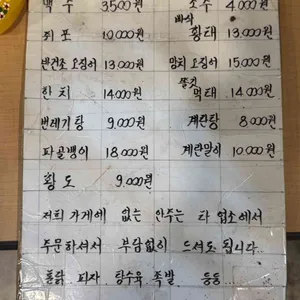 맥주 3500원 소주 4,000원
쥐포 10,000원 바싹 황태 13,000원
반건조 오징어 13,000원 맘치 오징어 15,000원
한치 14,000원 쫄깃 먹태 14,000원
번데기탕 9,000원 계란탕 8,000원
파골뱅이 18,000원 계란말이 10,000원
황도 9,000원
저희 가게에 없는 안주는 타 업소에서
주문하셔서 부담없이 드셔도 됩니다.
통닭 피자 탕수육 족발 등등...